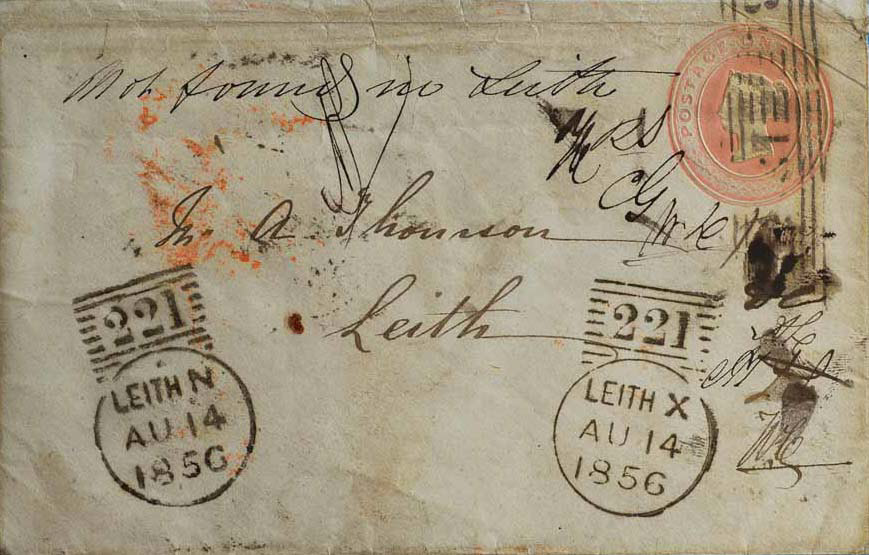 Not found in Leith
POSTAGE ONE
Mr. A Thomson
Leith
221
LEITH N
AU 14
1856
221
LEITH X
AU 14
1856